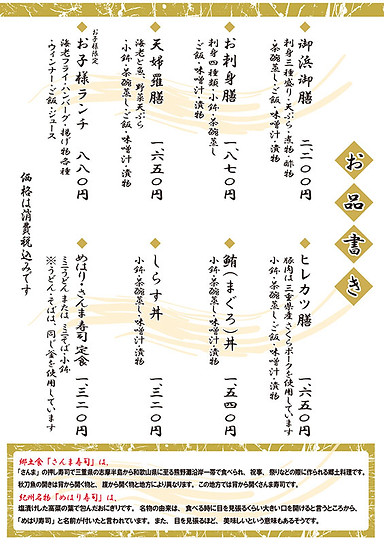 お品書き
御浜御膳 二、二〇〇円
刺身三種盛り・天ぷら・煮物・酢物
茶碗蒸し・ご飯・味噌汁・漬物
お刺身膳 一、八七〇円
刺身四種類・小鉢・茶碗蒸し
ご飯・味噌汁・漬物
天婦羅膳 一、六五〇円
海老と魚、野菜天ぷら
小鉢・茶碗蒸し・ご飯・味噌汁・漬物
お子様限定
お子様ランチ 八八〇円
海老フライ・ハンバーグ・揚げ物各種
ウィンナー・ご飯・ジュース
ヒレカツ膳 一、六五〇円
豚肉は三重県産さくらポークを使用しています
小鉢・茶碗蒸し・ご飯・味噌汁・漬物
鮪(まぐろ)丼 一、五四〇円
小鉢・茶碗蒸し・味噌汁・漬物
しらす丼 一、三二〇円
小鉢・茶碗蒸し・味噌汁・漬物
めはり・さんま寿司定食 一、三二〇円
ミニうどん または ミニそば・小鉢
※うどん・そばは、同じ釜を使用しています
価格は消費税込みです
郷土食「さんま寿司」は、
「さんま」の押し寿司で三重県の志摩半島から和歌山県に至る熊野灘沿岸一帯で食べられ、祝事、祭りなどの際に作られる郷土料理です。
秋刀魚の開きは背から開く物と、腹から開く物と地方により異なります。この地方では背から開くさんま寿司です。
紀州名物「めはり寿司」は、
塩漬けした高菜の葉で包んだおにぎりです。名物の由来は、食べる時に目を見張るくらい大きい口を開けると言うところから、
「めはり寿司」と名前が付いたと言われています。また、目を見張るほど、美味しいという意味もあるそうです。